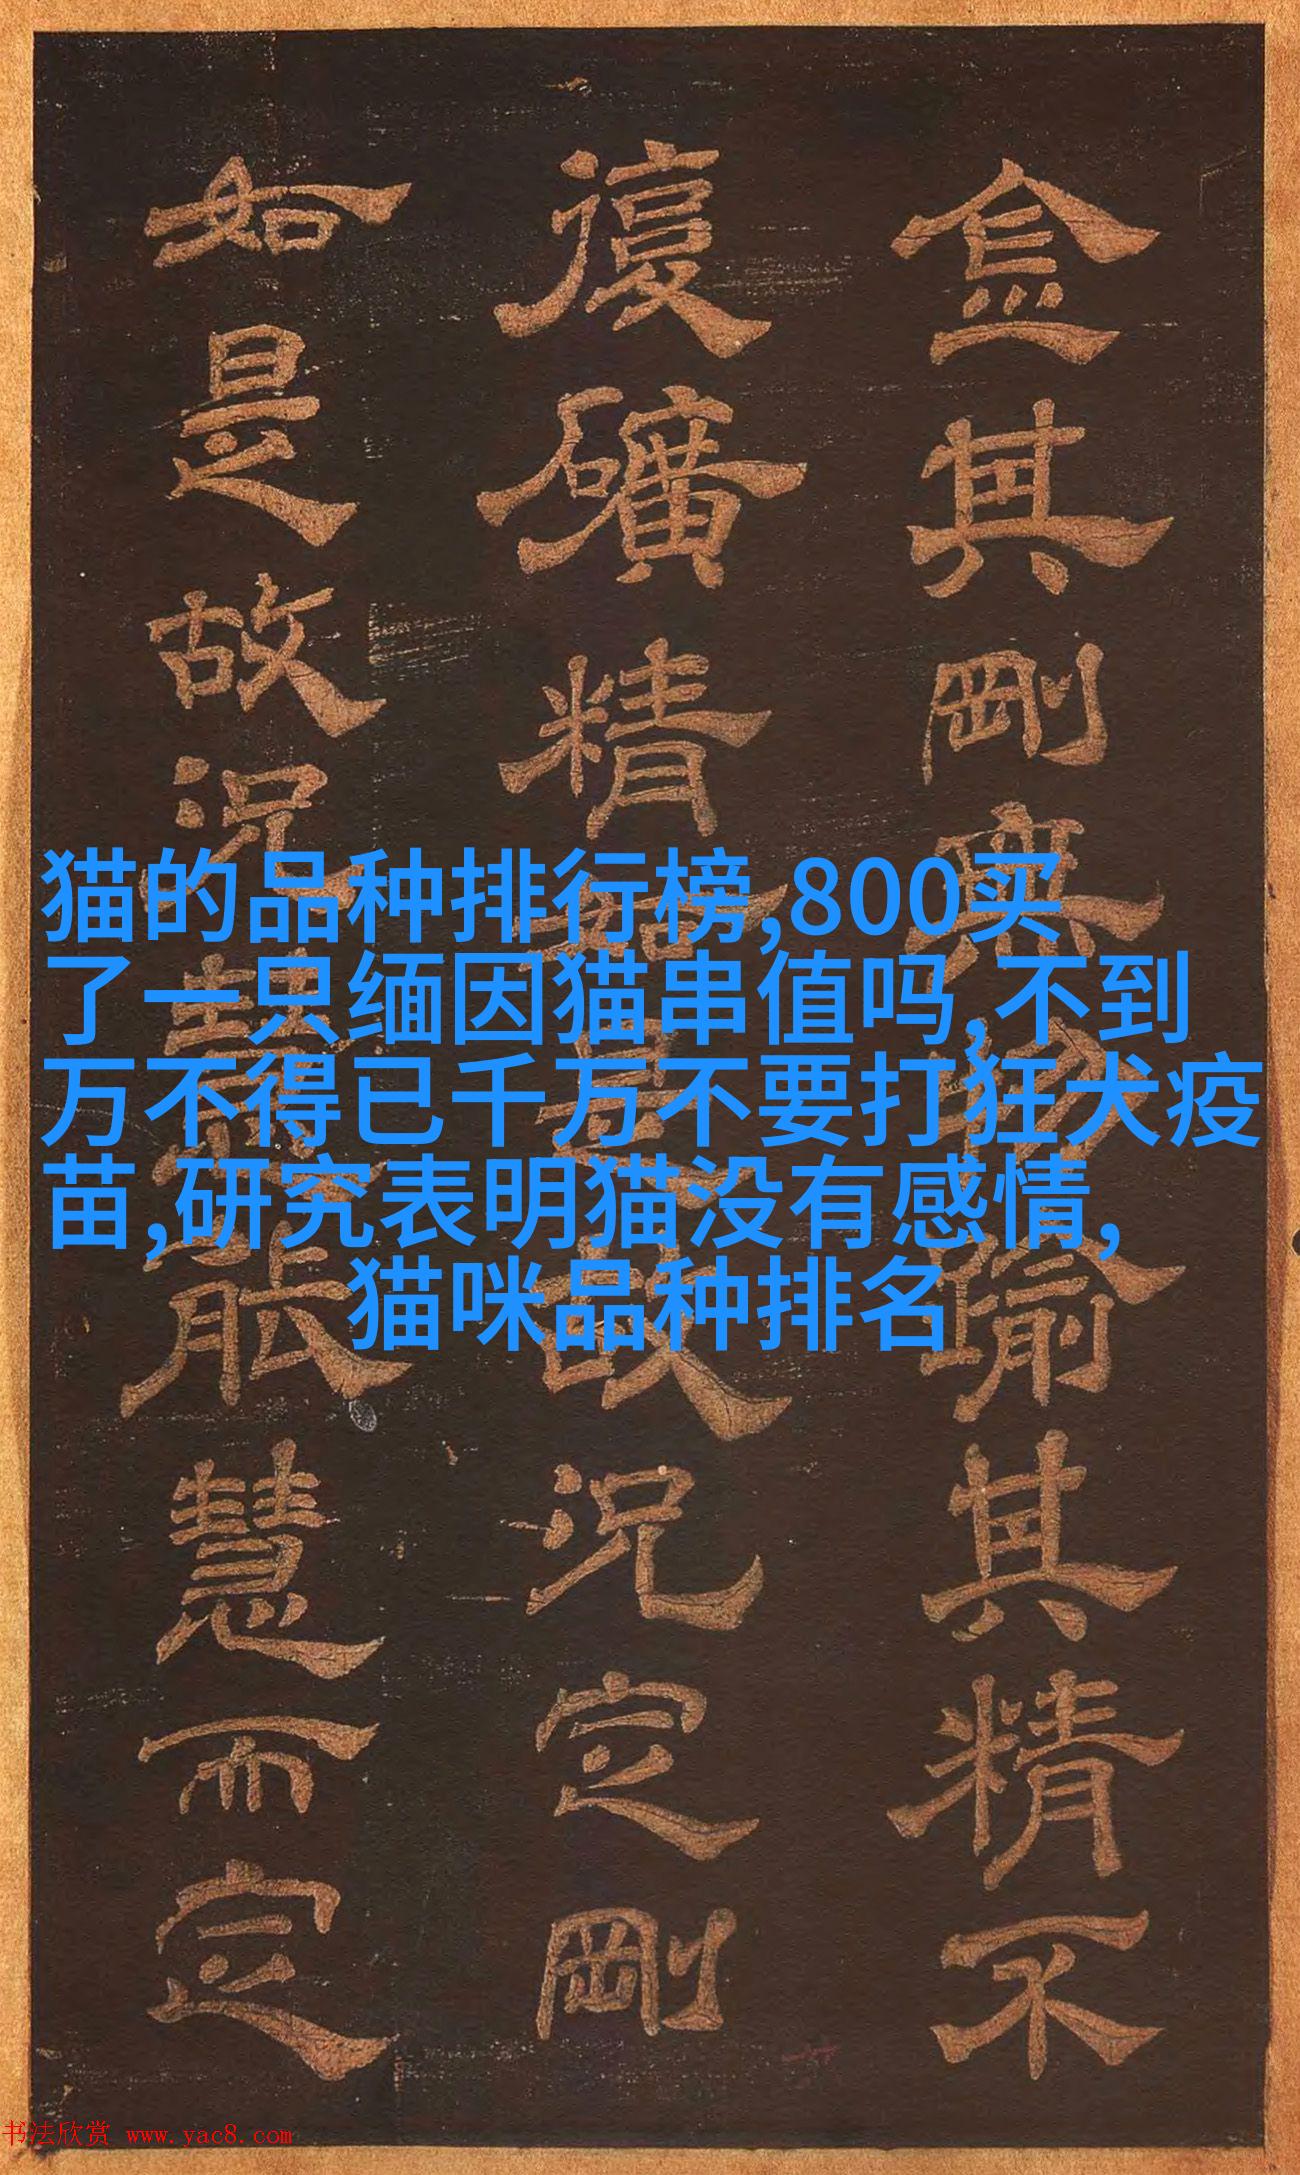 猫的品种排行榜,800买
了一只缅因猫串值吗,不到
万不得已千万不要打狂犬疫
苗,研究表明猫没有感情,
猫咪品种排名
金其剛
其精不
復礦精
况定剛
如是故况
慧而定
书法欣赏 www.yac8.com